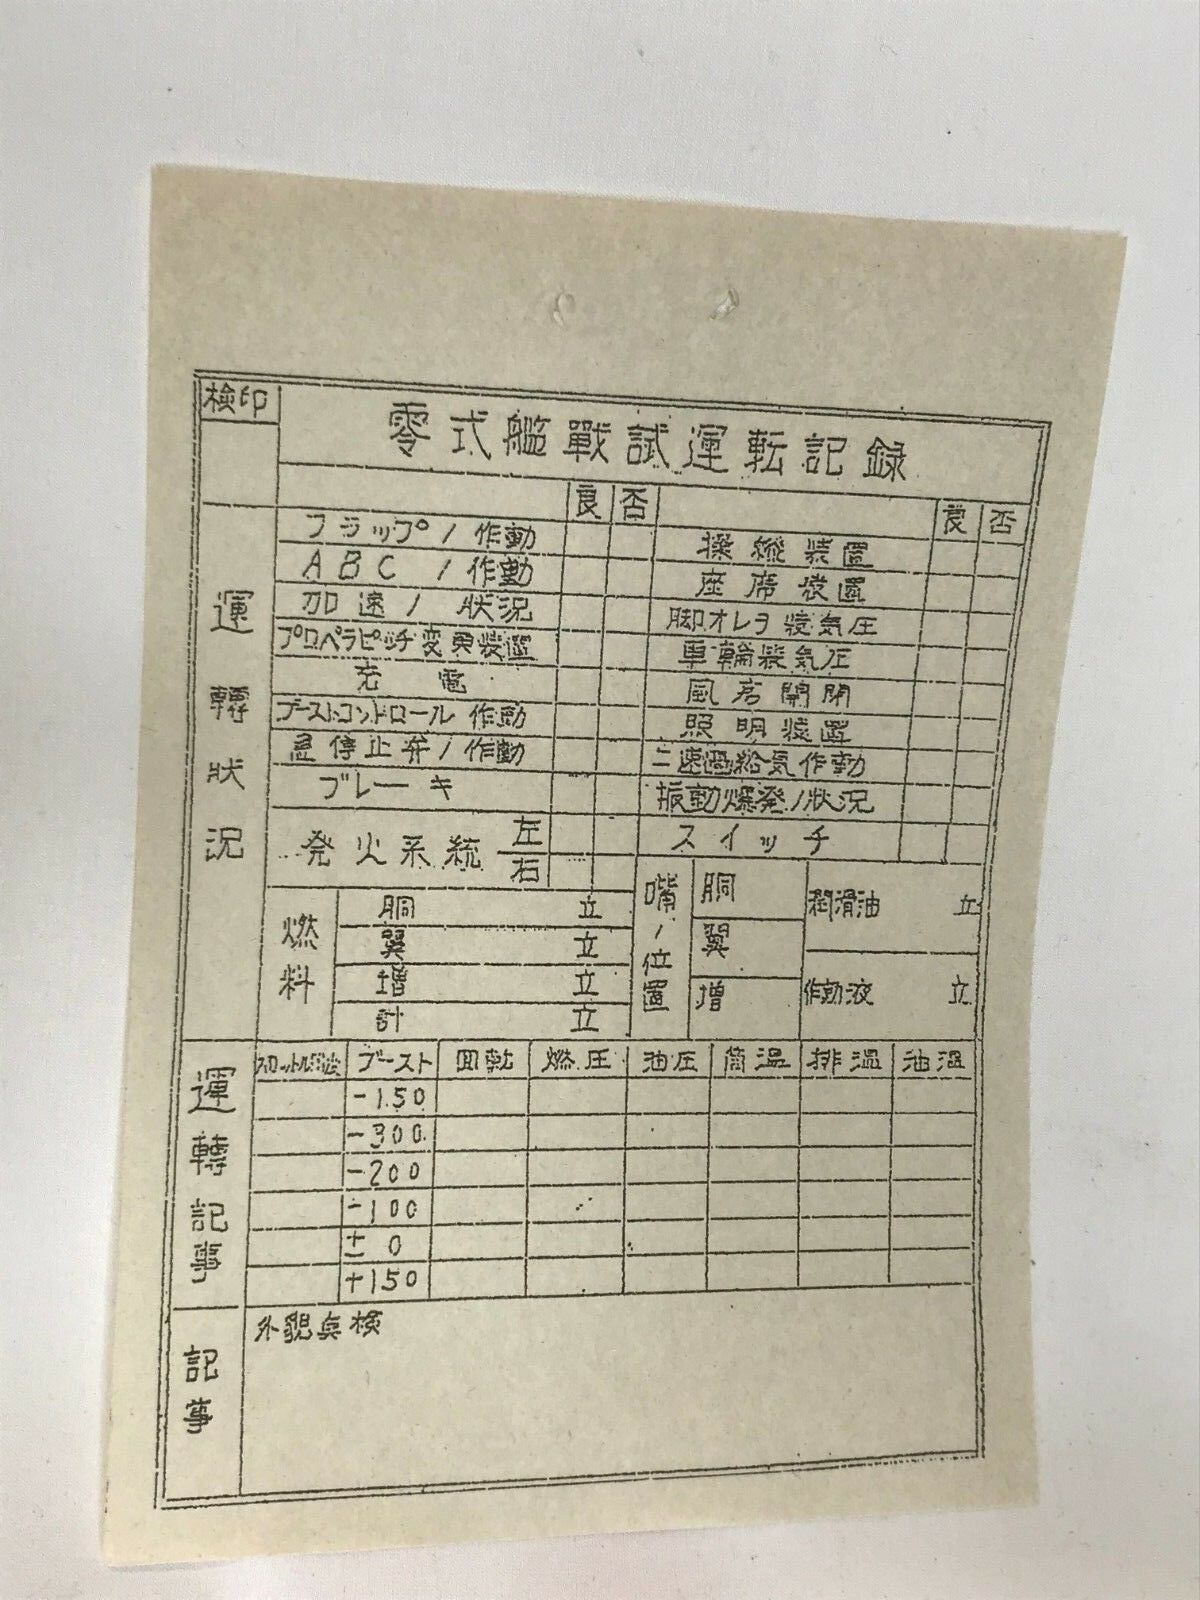 検印
零式艦戦試運転記録
良 否 良 否
運轉状況
フラップノ作動 操縦装置
ABCノ作動 座席装置
加速ノ状況 脚オレヲ装気圧
プロペラピッチ変更装置 車輪装気圧
充電 風房開閉
ブーストコントロール作動 照明装置
急停止弁ノ作動 二速過給気作動
ブレーキ 振動爆発ノ状況
発火系統 左 スイッチ
右
燃料 胴 立 嘴ノ位置 胴 潤滑油 立
翼 立 翼
増 立 増 作動液 立
計 立
運轉記事
ブースト 回転 燃圧 油圧 筒温 排温 油温
-150
-300
-200
-100
±0
+150
記事
外貌点検